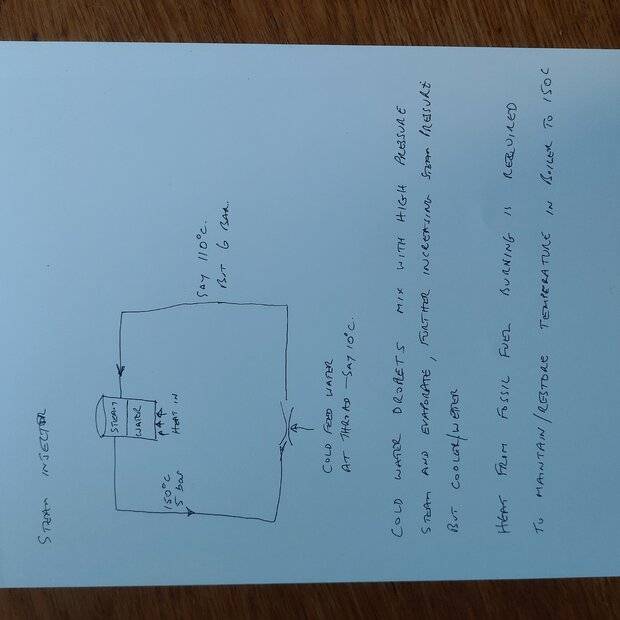 STEAM INJECTOR
STEAM
WATER
HEAT IN
150°C
5 bar
SAY 110°C.
BUT 6 BAR.
COLD FEED WATER
AT THROAD - SAY 10°C.
COLD WATER DROPLETS MIX WITH HIGH PRESSURE
STEAM AND EVAPORATE, FURTHER INCREASING STEAM PRESSURE
BUT COOLER/WETTER
HEAT FROM FOSSIL FUEL BURNING IS REQUIRED
TO MAINTAIN/RESTORE TEMPERATURE IN BOILER TO 150C